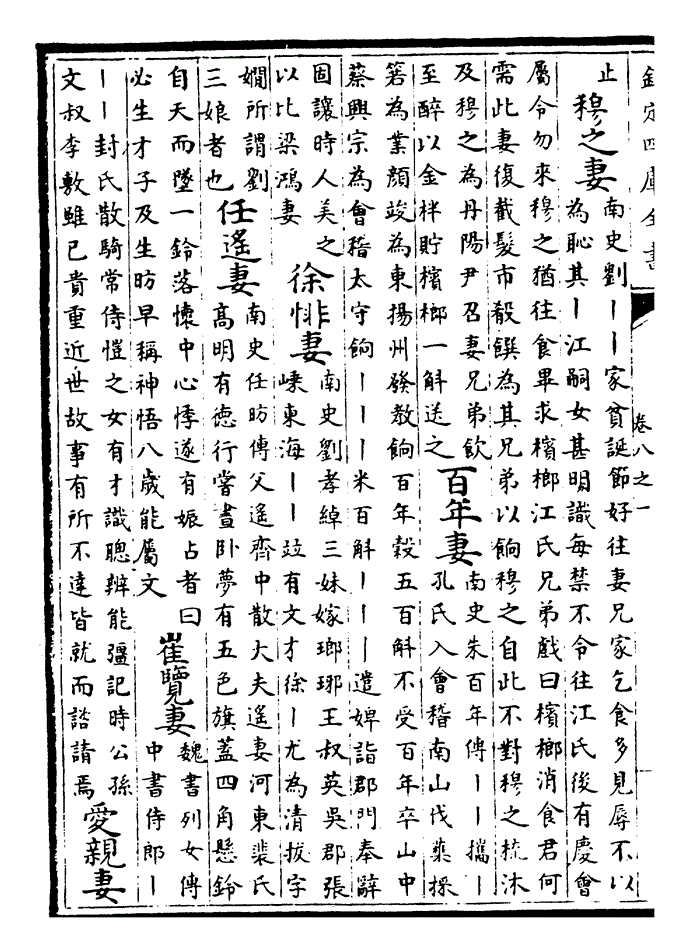 欽定四庫全書 卷八之一
止
穆之妻
南史劉丨丨家貧誕節好往妻兄家乞食多見辱不以
為恥其丨江嗣女甚明識每禁不令往江氏後有慶會
屬令勿來穆之猶往食畢求檳榔江氏兄弟戲曰檳榔消食君何
需此妻復截髮市殽饌為其兄弟以餉穆之自此不對穆之梳沐
及穆之為丹陽尹召妻兄弟飲
至醉以金柈貯檳榔一斛送之
百年妻
南史朱百年傳丨丨攜丨
孔氏入會稽南山伐藥採
箬為業顏竣為東揚州發教餉百年穀五百斛不受百年卒山中
蔡興宗為會稽太守餉丨丨丨米百斛丨丨丨遣婢詣郡門奉辭
固讓時人美之
以比梁鴻妻
徐悱妻
南史劉孝綽三妹嫁瑯琊王叔英吳郡張
嵊東海丨丨竝有文才徐丨尤為清拔字
嫺所謂劉
三娘者也
任遙妻
南史任昉傳父遙齊中散大夫遙妻河東裴氏
高明有徳行嘗晝卧夢有五色旗蓋四角懸鈴
自天而墜一鈴落懷中心悸遂有娠占者曰
必生才子及生昉早稱神悟八歲能屬文
崔覽妻
魏書列女傳
中書侍郎丨
丨丨封氏散騎常侍愷之女有才識聰辨能彊記時公孫
文叔李敷雖已貴重近世故事有所不達皆就而諮請焉
愛親妻